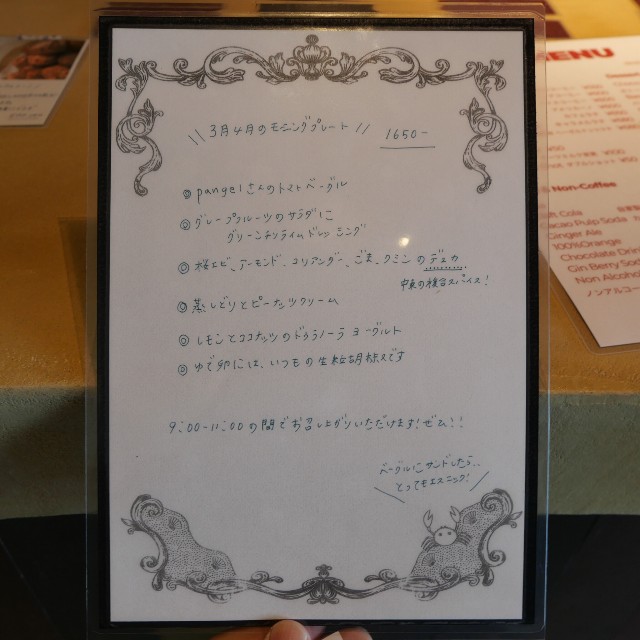 \\ 3月4月のモーニングプレート // 1650-
◎ pangelさんのトマトベーグル
◎ グレープフルーツのサラダに
グリーンチリライムドレッシング
◎ 桜エビ、アーモンド、コリアンダー、ごま、クミンのデュカ
中東の複合スパイス!
◎ 蒸しどりとピーナッツクリーム
◎ レモンとココナッツのドゥラノーラ ヨーグルト
◎ ゆで卵には、いつもの生粒胡椒です
9:00-11:00の間でお召し上がりいただけます!ぜひ!!
ベーグルにサンドしたら..
とってもエスニック!
MENU
Non-Coffee
Cola
Cacao Pulp Soda
Ginger Ale
100%Orange
Chocolate Drink
Gin Berry Soda
Non Alcohol
ノンアルコール